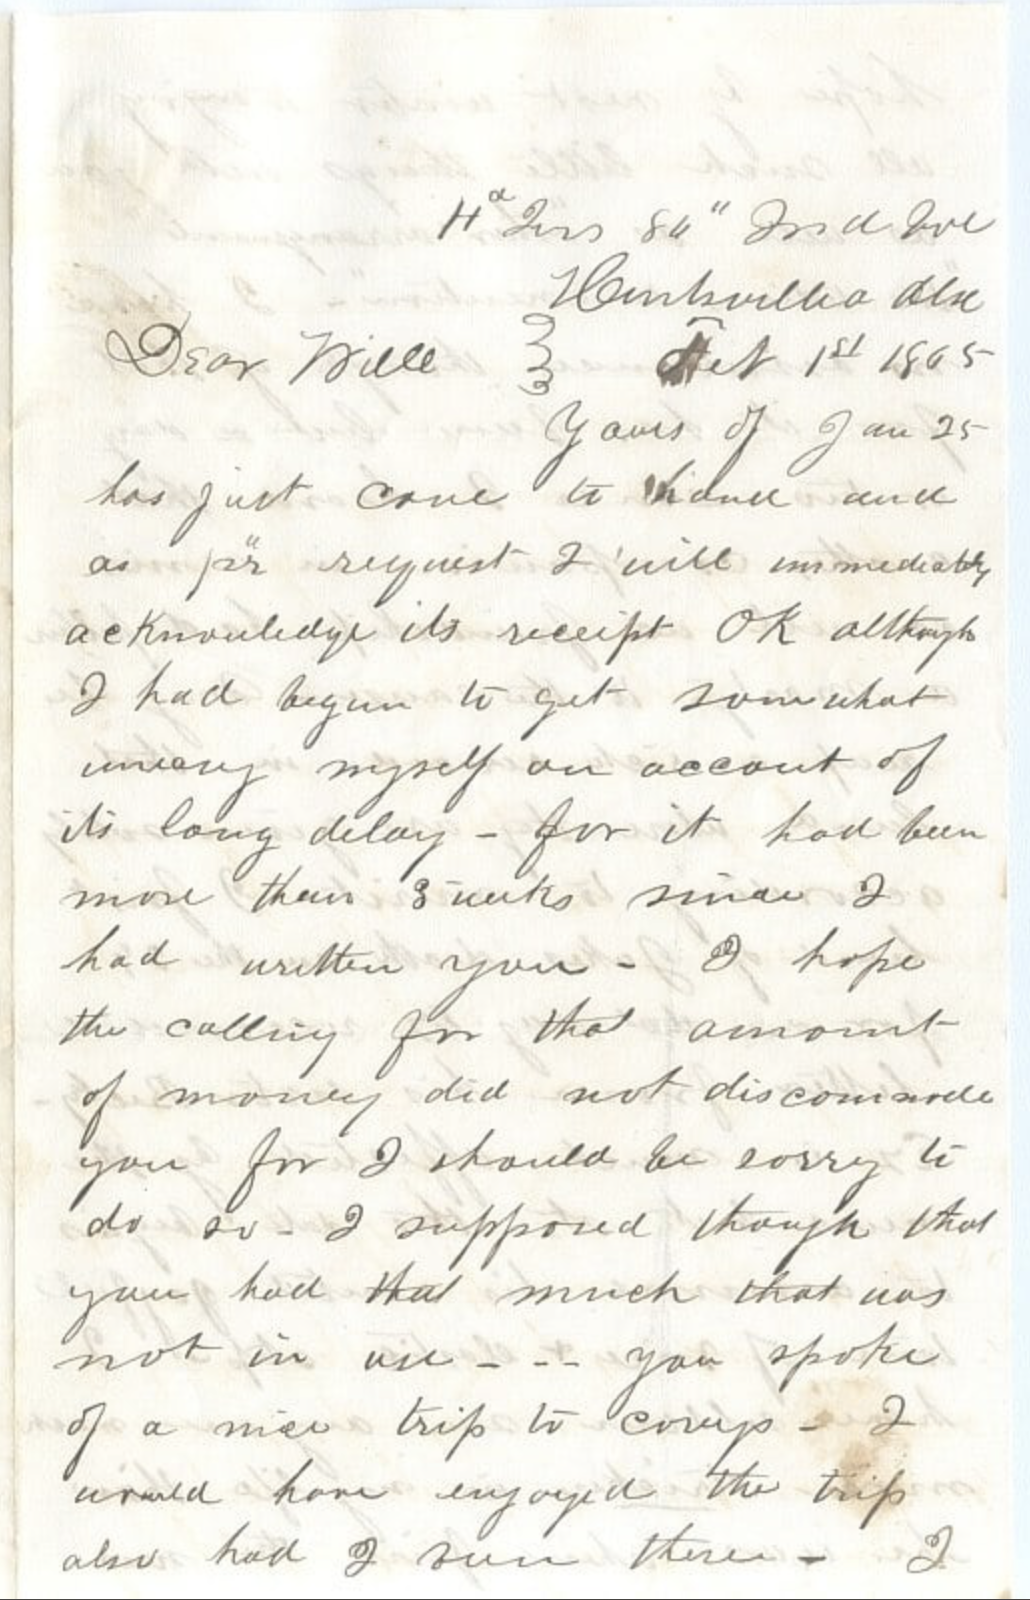 Hd Qurs 84" Ind Vol
Huntsville Ala
Dear Will Feb 1st 1865
Yours of Jan 25
has just come to hand and
as p"r request I will immediately
acknowledge its receipt OK although
I had begun to get somwhat
uneasy myself on account of
its long delay - for it had been
more than 3 weeks since I
had written you - I hope
the calling for that amount
of money did not discommode
you for I should be sorry to
do so - I supposed though that
you had that much that was
not in use - - - you spoke
of a nice trip to - I
would have enjoyed the trip
also had I been there - I